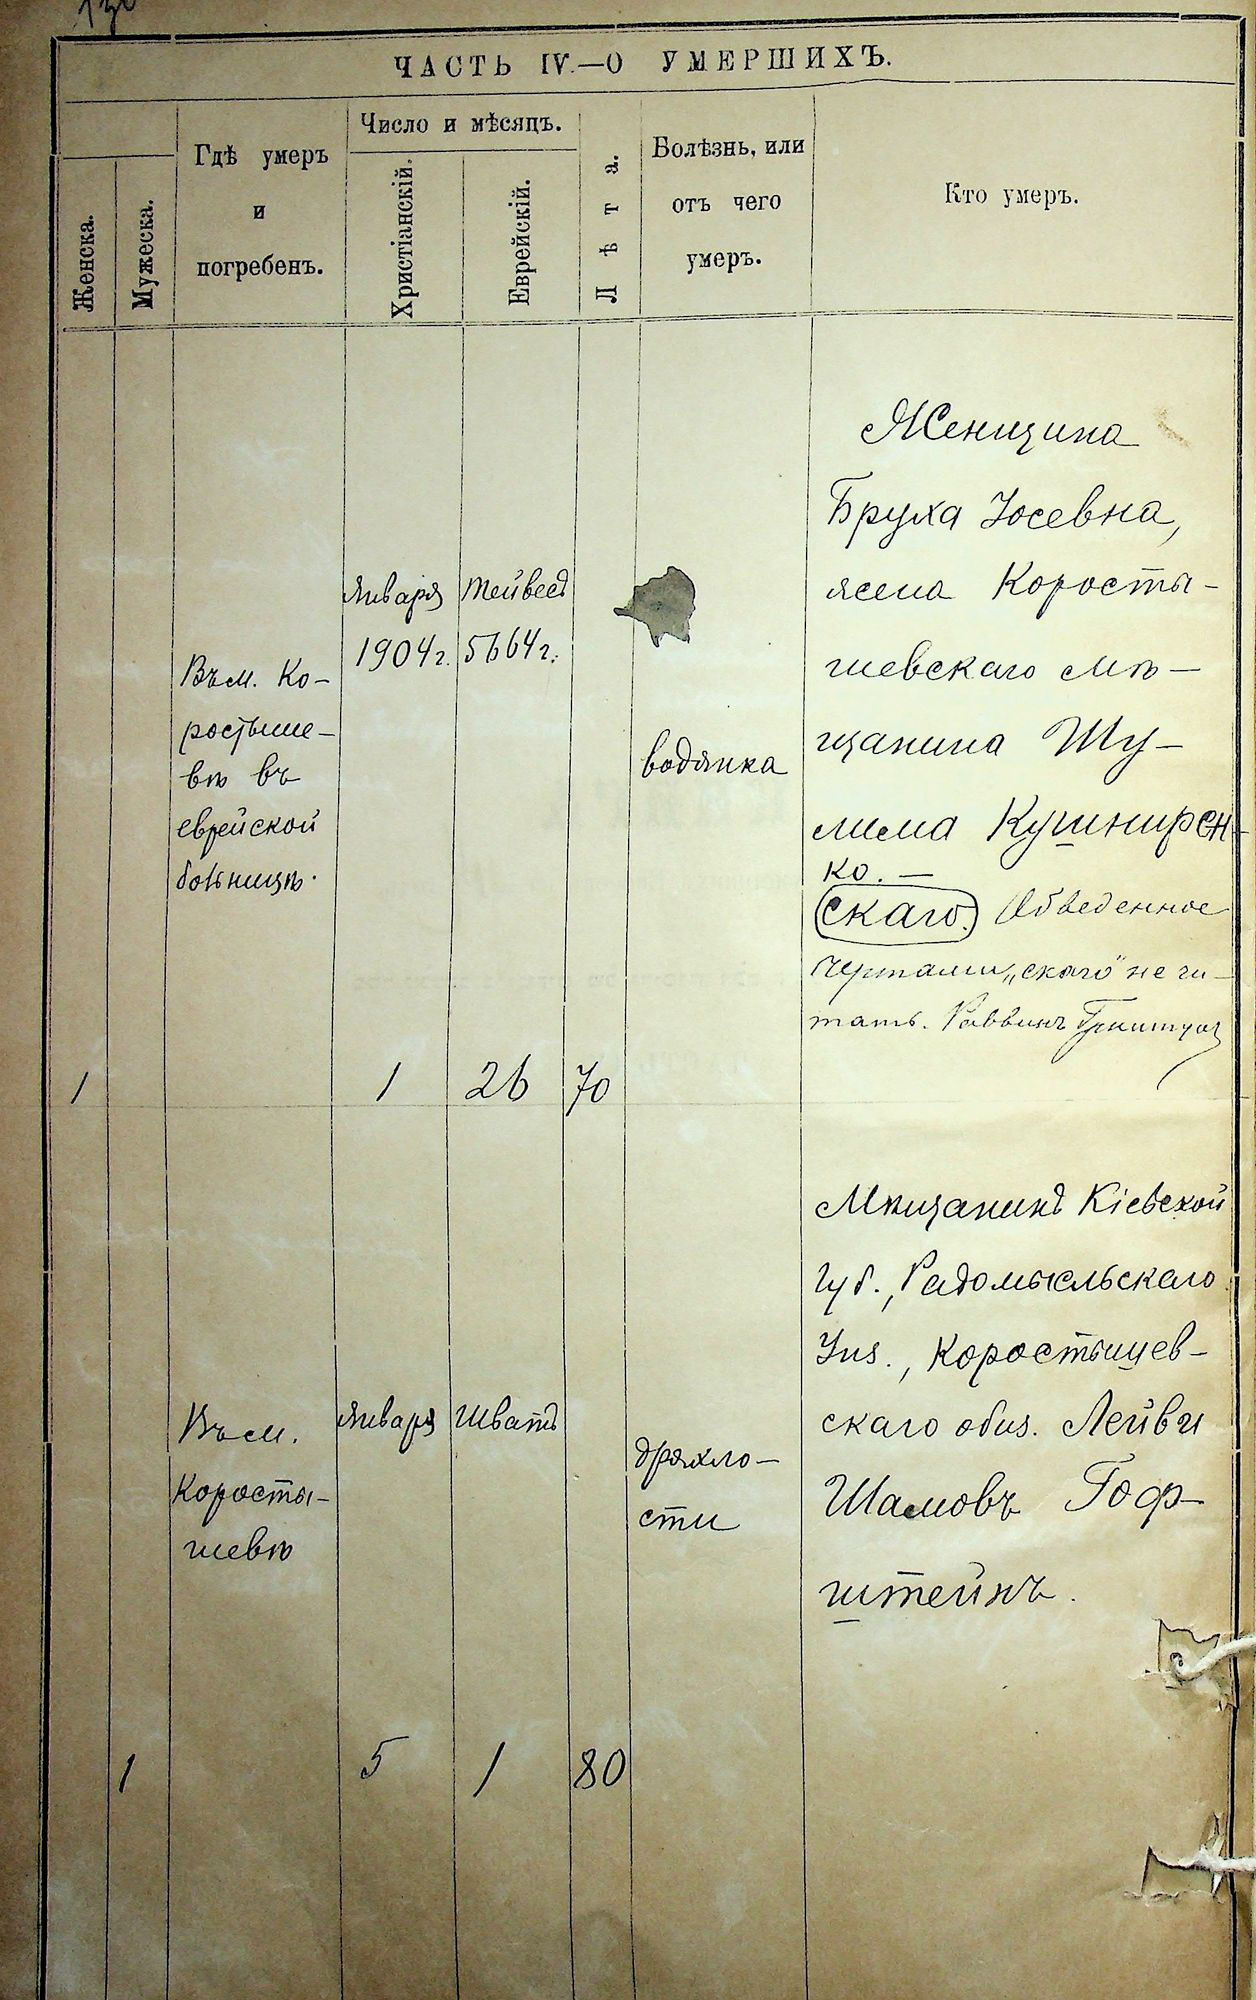 ЧАСТЬ IV.—О УМЕРШИХЪ.
Женска.
Мужеска.
Гдѣ умеръ
и
погребенъ.
Число и мѣсяцъ.
Христіанскій.
Еврейскій.
Лѣта.
Болѣзнь, или
отъ чего
умеръ.
Кто умеръ.
1
Въ м. Ко-
ростыше-
вѣ въ
еврейской
больницѣ.
Января
1904 г.
1
Тейвесъ
5664 г.
26
70
водянка
Женщина
Бруха Іосевна,
жена Коросты-
шевскаго мѣ-
щанина Шу-
лима Кушнирен-
ко. —
скаго. Обведенное
чертами „скаго" не чи-
тать. Раввинъ
1
Въ м.
Коросты-
шевѣ
Января
5
Шватъ
1
80
дряхло-
сти
Мѣщанинъ Кіевской
губ., Радомысльскаго
уѣз., Коростышев-
скаго общ. Лейви
Шамовъ Гоф-
штейнъ.